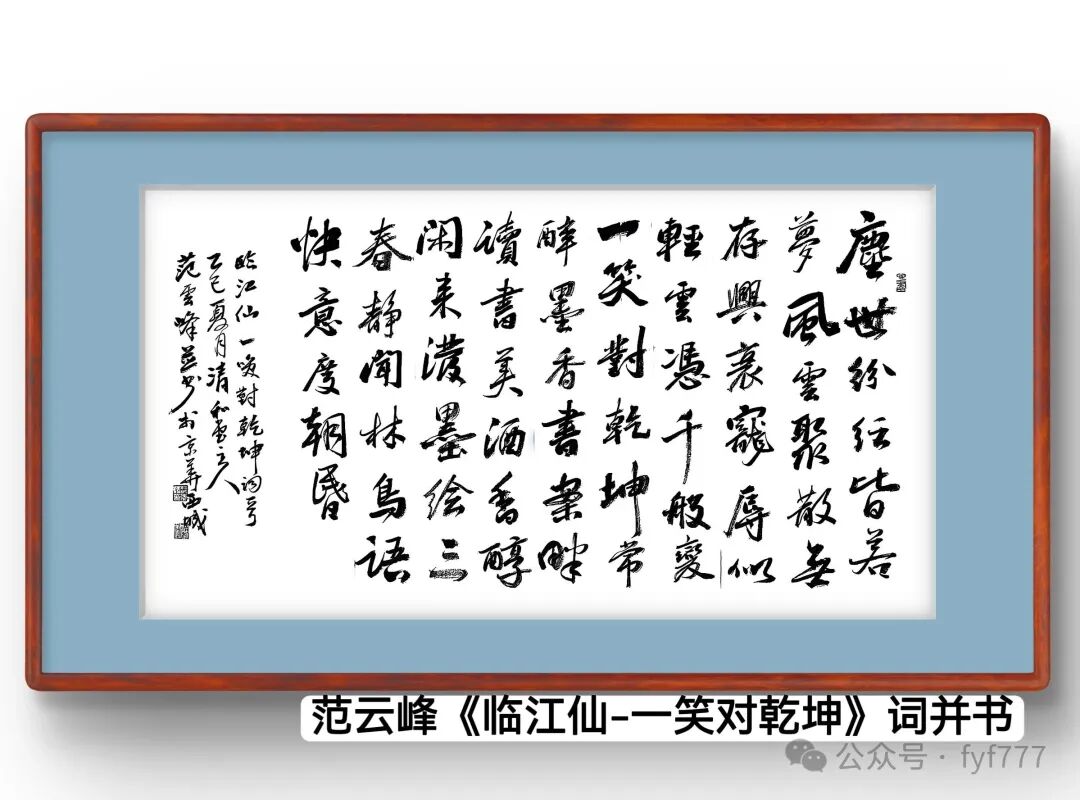 塵世紛紜皆若
夢風雲聚散無
存興衰寵辱似
輕雲憑千般變
一笑對乾坤常
醉墨香書案畔
讀書美酒香醇
闲来潑墨绘三
春静聞林鳥語
快意度朝昏
临江仙一笑對乾坤词
乙巳夏月清和主人
范雲峰并书於京華西城
范云峰《临江仙-一笑对乾坤》词并书
公众号·fyf777